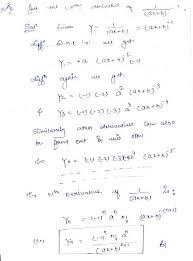 the nth derivative of 1/(ax+b) :
Sol: Given y = 1/(ax+b) = (ax+b)⁻¹
Diff w.r.t x we get
y₁ = (-1) a (ax+b)⁻²
again we get
y₂ = (-1)(-2) a² (ax+b)⁻³
y₃ = (-1)(-2)(-3) a³ (ax+b)⁻⁴
Similarly other derivatives can also
be found out in this
the nth derivative of 1/(ax+b) is :
yₙ = (-1)ⁿ n! aⁿ (ax+b)⁻⁽ⁿ⁺¹⁾
(or) yₙ = (-1)ⁿ n! aⁿ / (ax+b)ⁿ⁺¹